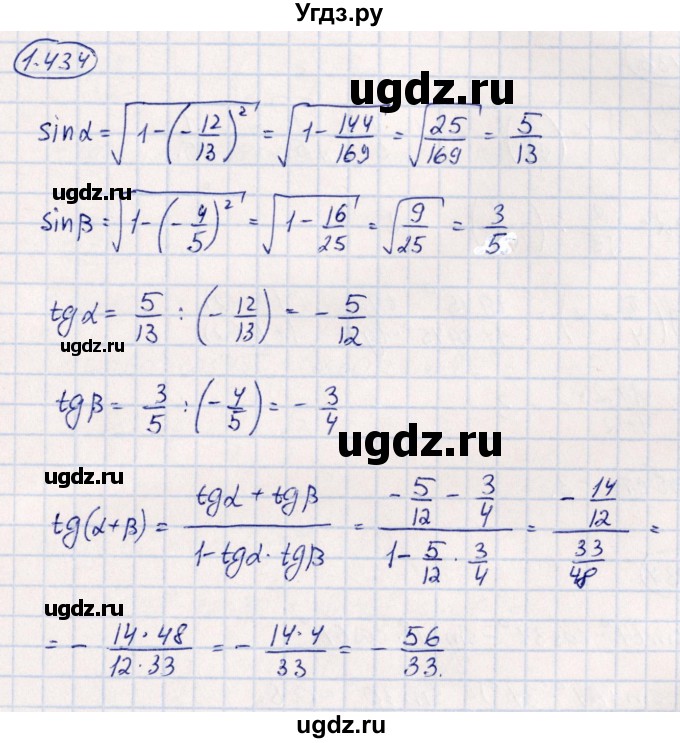 Угдз.ру
1.434
ugdz.ru
sinα = √(1 - (-12/13)²) = √(1 - 144/169) = √(25/169) = 5/13
ugdz.ru
sinβ = √(1 - (-4/5)²) = √(1 - 16/25) = √(9/25) = 3/5
tgα = 5/13 : (-12/13) = - 5/12
ugdz.ru
tgβ = 3/5 : (-4/5) = - 3/4
ugdz.ru
ugdz.ru
tg(α+β) = (tgα + tgβ)/(1 - tgα · tgβ) = (- 5/12 - 3/4)/(1 - 5/12 · 3/4) = (- 14/12)/(33/48) =
ugdz.ru
= - (14·48)/(12·33) = - (14·4)/33 = - 56/33.
ugdz.ru